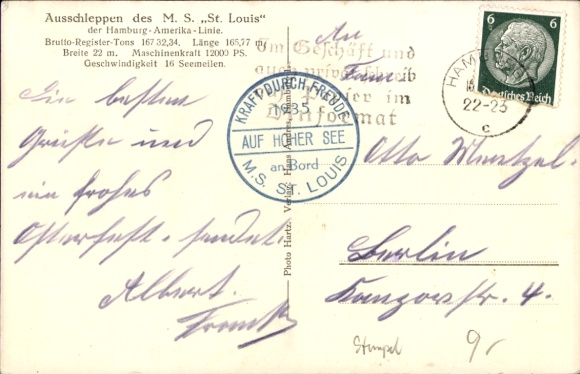 Ausschleppen des M. S. „St. Louis"
der Hamburg-Amerika-Linie.
Brutto-Register-Tons 167 32,34. Länge 165,77 m
Breite 22 m. Maschinenkraft 12000 PS.
Geschwindigkeit 16 Seemeilen.
Die besten
Grüße und
ein frohes
Osterfest sendet
Albert
Photo Hartz, Verlag: Hans Andres, Hamburg
KRAFT DURCH FREUDE
1935
AUF HOHER SEE
an Bord
M.S. ST. LOUIS
Im Geschäft und
im
HAMBURG
22-23
c
6 6
Deutsches Reich
An
Otto
Berlin
str. 4.
Stempel 9,-